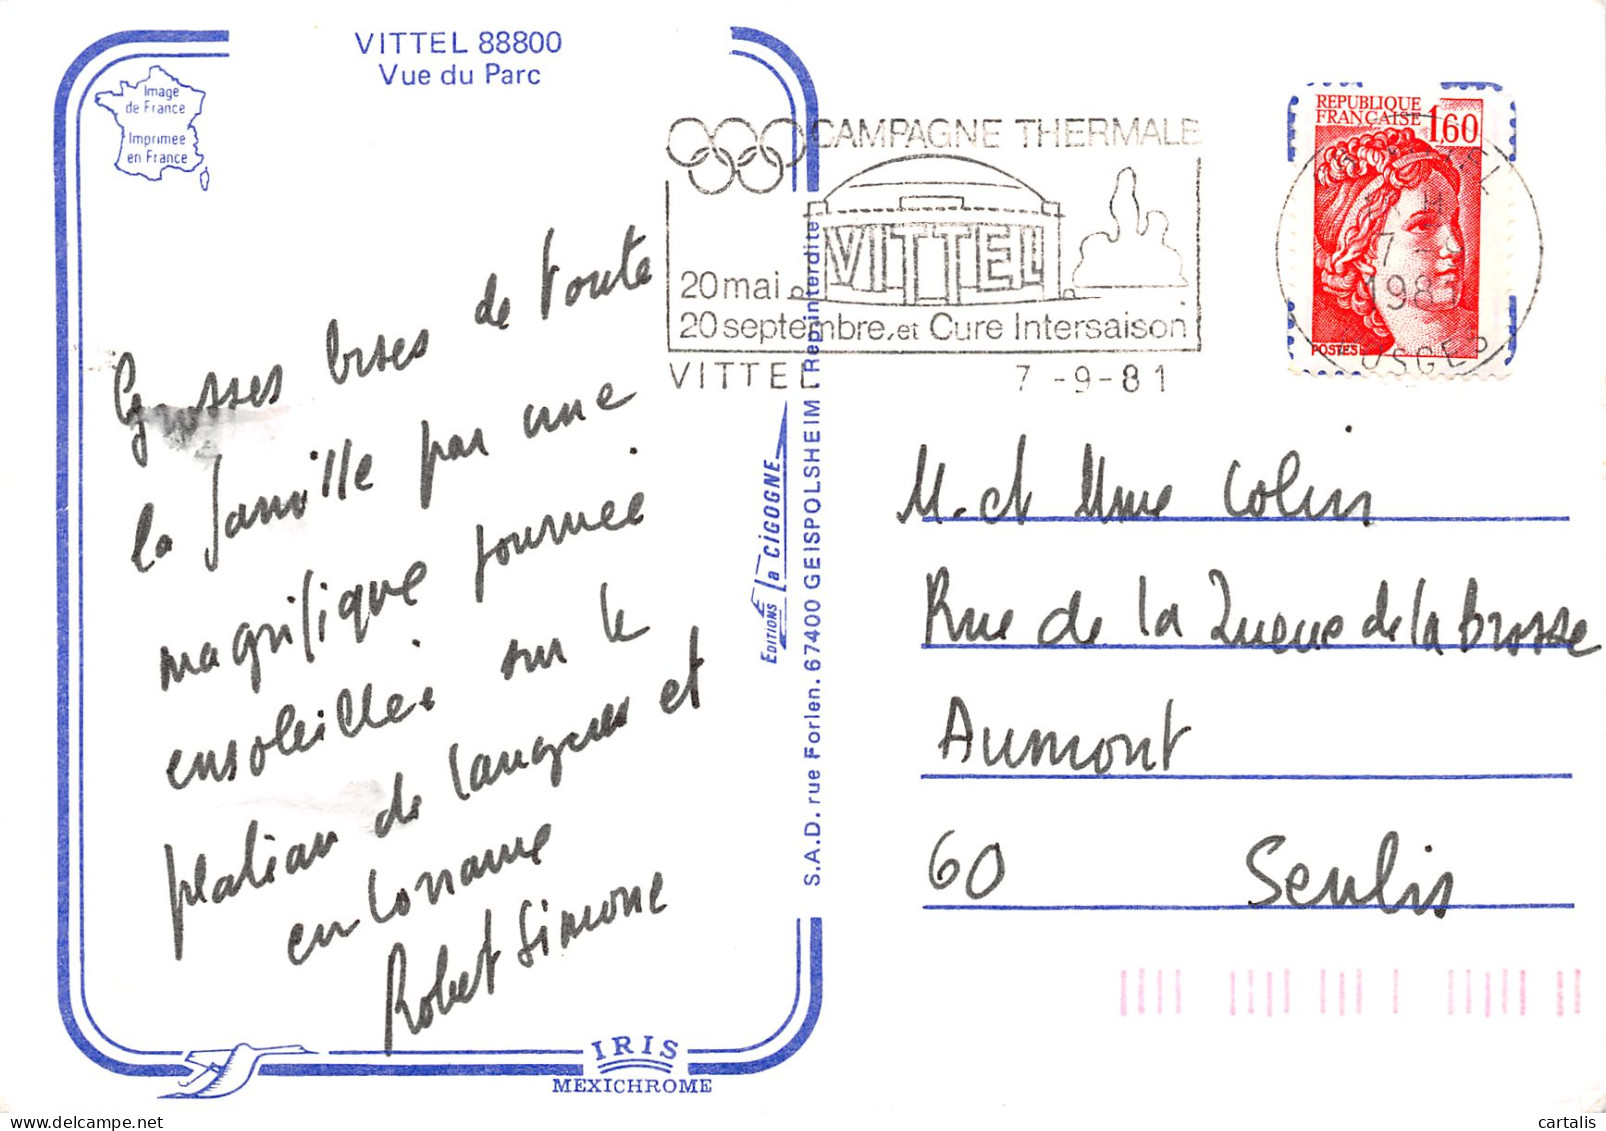 VITTEL 88800
Vue du Parc
Image
de France
Imprimée
en France
CAMPAGNE THERMALE
VITTEL
20 mai
20 septembre, et Cure Intersaison
VITTEL 7-9-81
REPUBLIQUE
FRANÇAISE 1,60
7
1981
POSTES
Grosses bises de toute
la famille par une
magnifique journée
ensoleillée sur le
plateau de Langres et
en Lorraine
Robert Simone
EDITIONS La CIGOGNE
S.A.D. rue Forlen. 67400 GEISPOLSHEIM Rep. interdite
M. et Mme Colin
Rue de la Queue de la Brosse
Aumont
60 Senlis
IRIS
MEXICHROME
cartalis